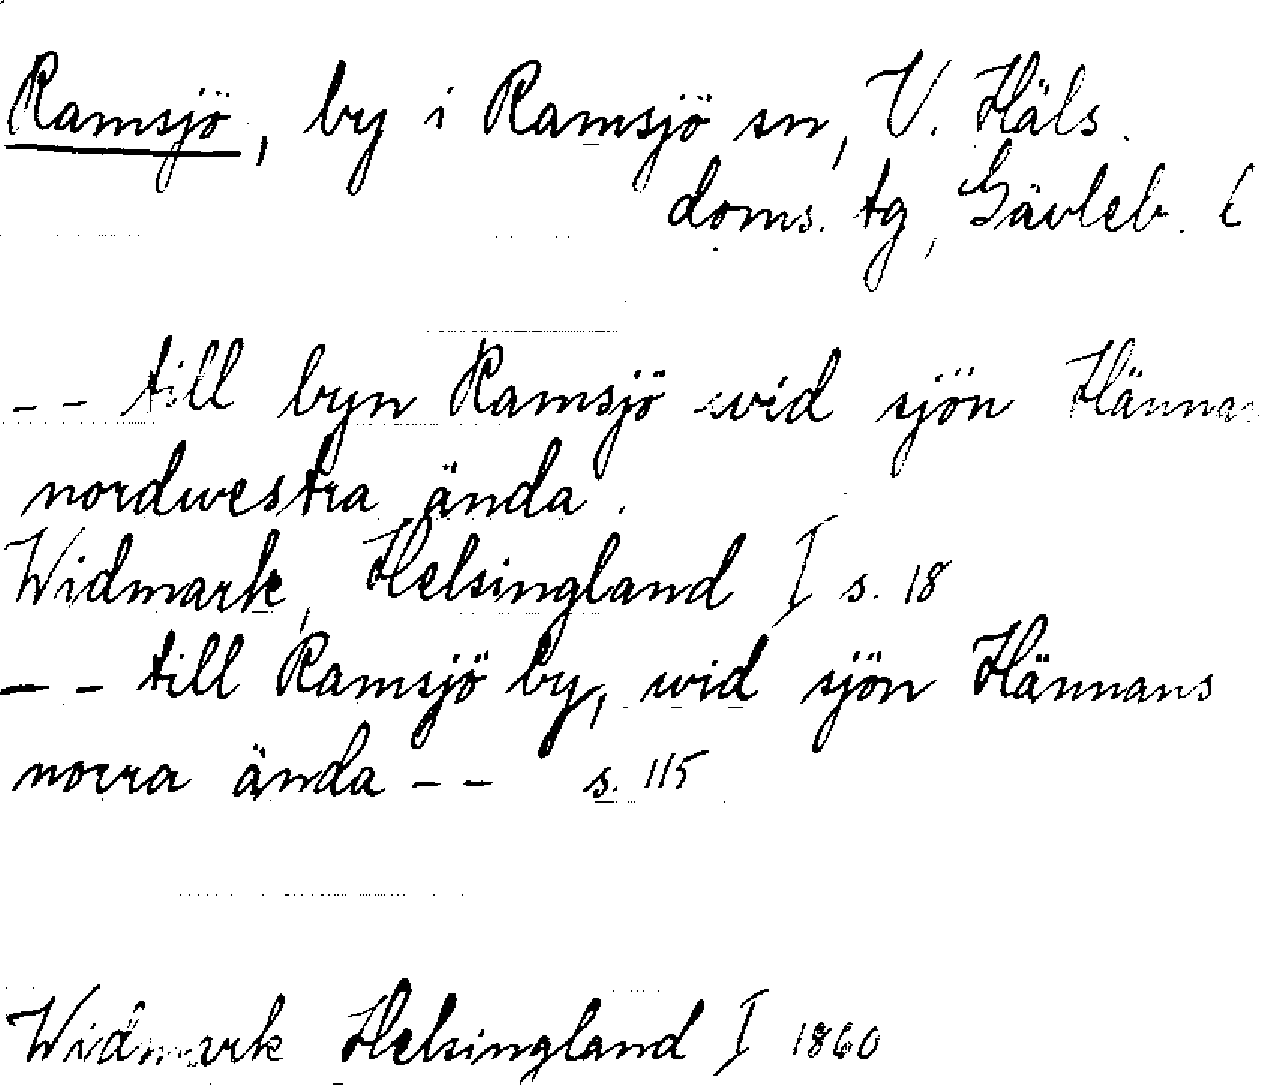 Ramsjö, by i Ramsjö sn, V. Häls.
doms. tg, Gävleb. l
-- till byn Ramsjö wid sjön Hännans
nordwestra ända.
Widmark, Helsingland I s. 18
-- till Ramsjö by, wid sjön Hännans
norra ända -- s. 115
Widmark Helsingland I 1860